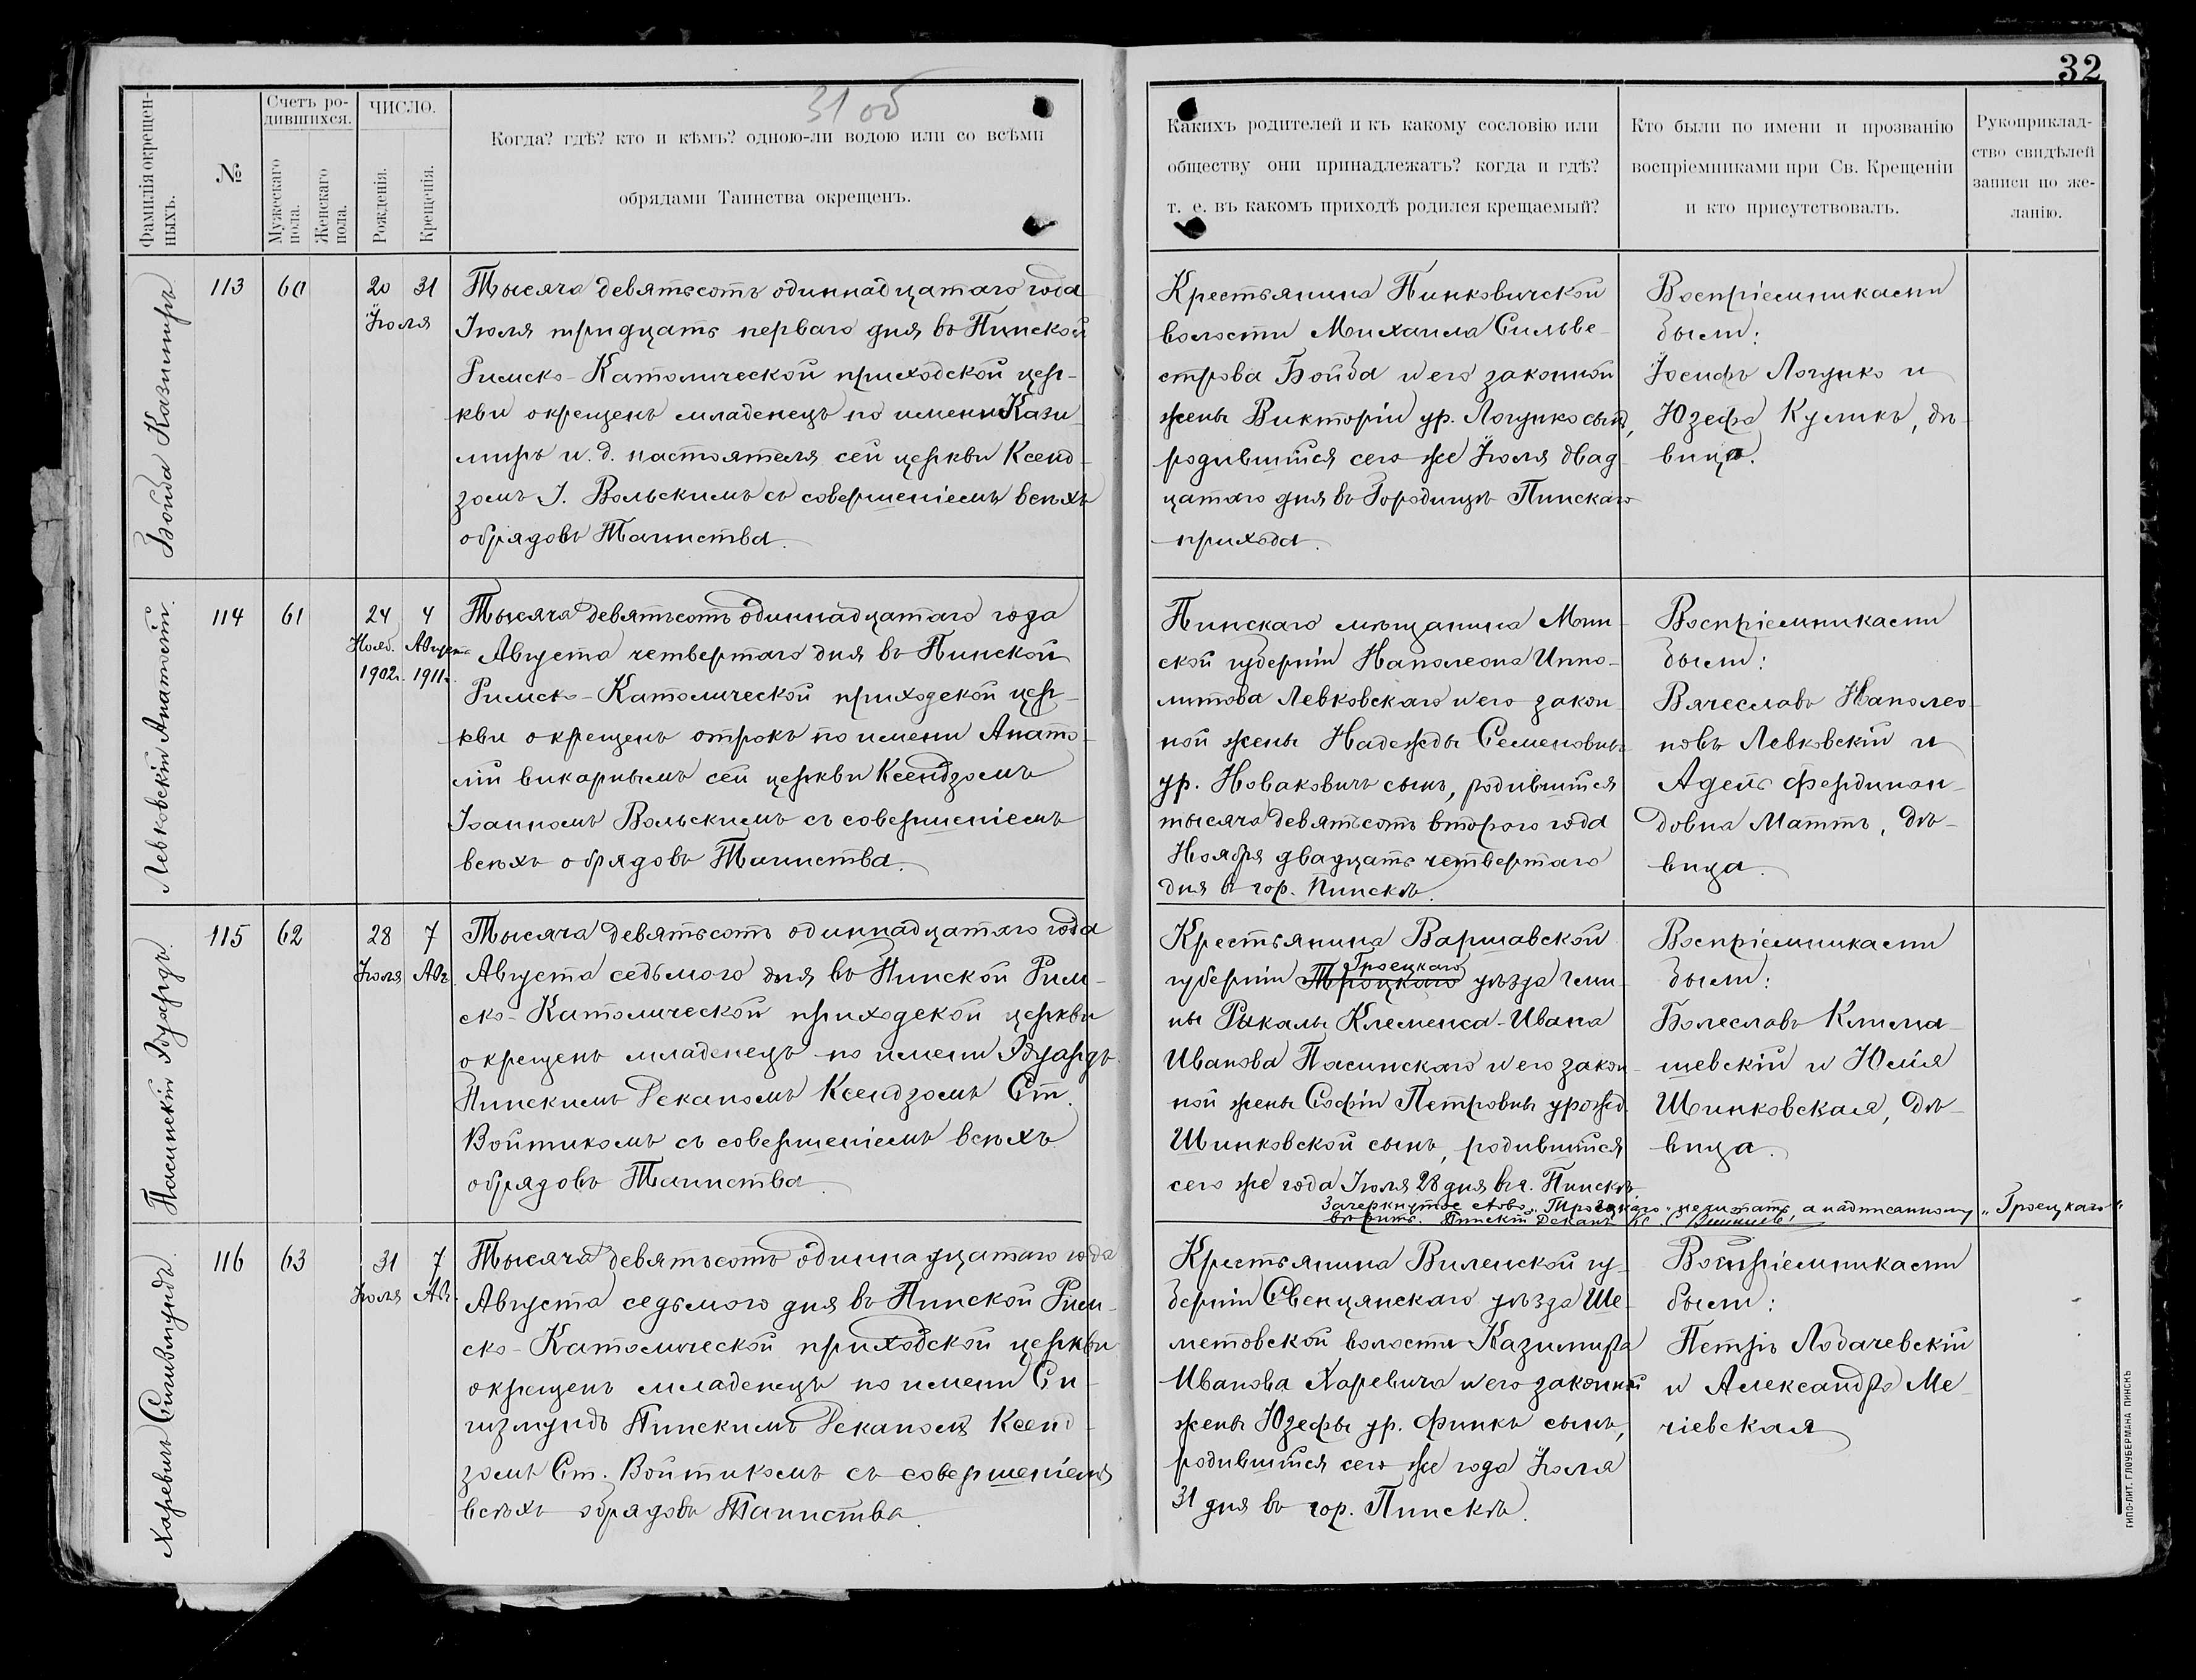 32
31 об
Фамилія окрещен-
ныхъ.
№
Счетъ ро-
дившихся.
Мужескаго
пола.
Женскаго
пола.
ЧИСЛО.
Рожденія.
Крещенія.
Когда? гдѣ? кто и кѣмъ? одною-ли водою или со всѣми
обрядами Таинства окрещенъ.
Какихъ родителей и къ какому сословію или
обществу они принадлежатъ? когда и гдѣ?
т. е. въ какомъ приходѣ родился крещаемый?
Кто были по имени и прозванію
воспріемниками при Св. Крещеніи
и кто присутствовалъ.
Рукоприклад-
ство свидѣтелей
записи по же-
ланію.
Бойда Казимиръ
113
60
20 31
Іюля
Тысяча девятьсотъ одиннадцатаго года
Іюля тридцать перваго дня въ Пинской
Римско-Католической приходской цер-
кви окрещенъ младенецъ по имени Кази-
миръ и. д. настоятеля сей церкви Ксенд-
зомъ І. Вольскимъ съ совершеніемъ всѣхъ
обрядовъ Таинства.
Крестьянина Пинковичской
волости Михаила Сильве-
строва Бойда и его законной
жены Викторіи ур. Логушко сынъ,
родившійся сего же Іюля двад-
цатаго дня въ Городищѣ Пинскаго
прихода.
Воспріемниками
были:
Іосифъ Логушко и
Юзефа Куликъ, дѣ-
вица.
Левковскій Анатолій.
114
61
24 4
Нояб. Августа
1902г. 1911г.
Тысяча девятьсотъ одиннадцатаго года
Августа четвертаго дня въ Пинской
Римско-Католической приходской цер-
кви окрещенъ отрокъ по имени Анато-
лій викарнымъ сей церкви Ксендзомъ
Іоанномъ Вольскимъ съ совершеніемъ
всѣхъ обрядовъ Таинства.
Пинскаго мѣщанина Мин-
ской губерніи Наполеона Иппо-
литова Левковскаго и его закон-
ной жены Надежды Семеновны
ур. Новаковичъ сынъ, родившійся
тысяча девятьсотъ второго года
Ноября двадцать четвертаго
дня в гор. Пинскѣ.
Воспріемниками
были:
Вячеславъ Наполео-
новъ Левковскій и
Адель Фердинан-
довна Маттъ, дѣ-
вица.
Пасинскій Эдуардъ.
115
62
28 7
Іюля Авг.
Тысяча девятьсотъ одиннадцатаго года
Августа седьмого дня въ Пинской Рим-
ско-Католической приходской церкви
окрещенъ младенецъ по имени Эдуардъ
Пинскимъ Деканомъ Ксендзомъ Ст.
Войтикомъ съ совершеніемъ всѣхъ
обрядовъ Таинства.
Крестьянина Варшавской
Гроецкаго
губерніи Троцкаго уѣзда гми-
ны Рыкалы Клеменса-Ивана
Иванова Пасинскаго и его закон-
ной жены Софіи Петровны урожд.
Шинковской сынъ, родившійся
сего же года Іюля 28 дня въ г. Пинскѣ
Зачеркнутое слово "Троцкаго" не читать, а надписанному "Гроецкаго"
вѣрить. Пинскій Деканъ Кс.
Воспріемниками
были:
Болеславъ Клима-
шевскій и Юлія
Шинковская, дѣ-
вица.
Харевичъ Сигизмундъ.
116
63
31 7
Іюля Авг.
Тысяча девятьсотъ одиннадцатаго года
Августа седьмого дня въ Пинской Рим-
ско-Католической приходской церкви
окрещенъ младенецъ по имени Си-
гизмундъ Пинскимъ Деканомъ Ксенд-
зомъ Ст. Войтикомъ съ совершеніемъ
всѣхъ обрядовъ Таинства.
Крестьянина Виленской гу-
берніи Свенцянскаго уѣзда Ше-
метовской волости Казимира
Иванова Харевича и его законной
жены Юзефы ур. Финкъ сынъ,
родившійся сего же года Іюля
31 дня въ гор. Пинскѣ.
Воспріемниками
были:
Петръ Лодачевскій
и Александра Ме-
чіевская
ТИПО-ЛИТ. ГЛОУБЕРМАНА ПИНСКЪ